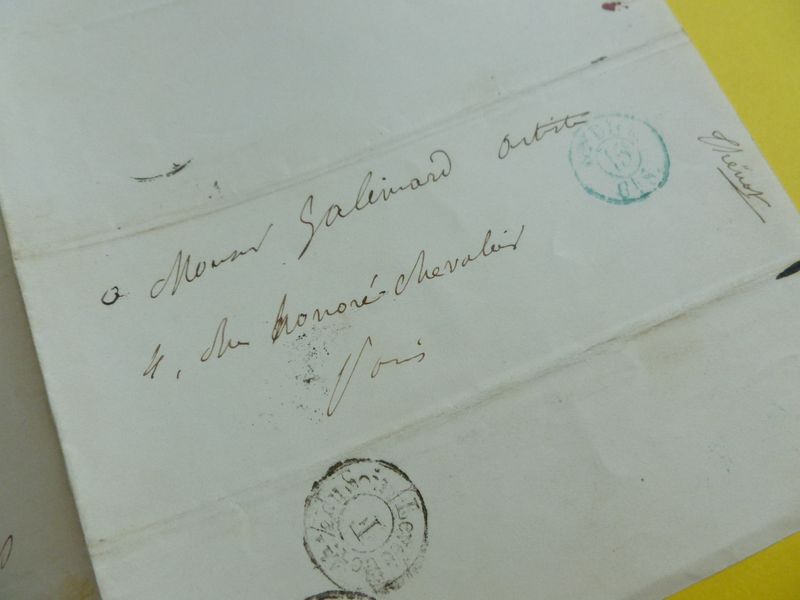 a Monsr Galimard artiste
4, rue honoré-chevalier
Paris
Thénot
15
1